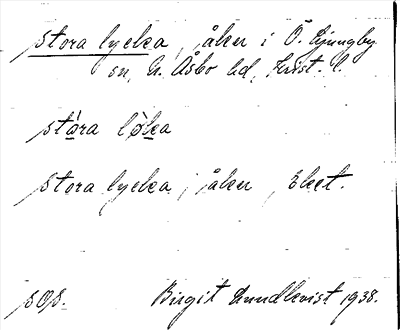 stora lycka, åker i Ö. Ljungby
sn, N. Åsbo hd, Krist. l.
stòra lø̀ka
stora lycka, åker, Eket.
Birgit Lundkvist 1938.